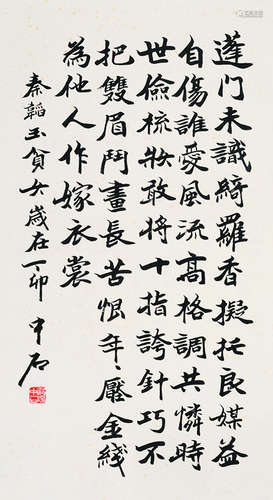 蓬門未識綺羅香擬托良媒益
自傷誰愛風流高格調共憐時
世儉梳妝敢將十指誇針巧不
把雙眉鬥畫長苦恨年、壓金綫
為他人作嫁衣裳
秦韜玉貧女歲在丁卯 中石